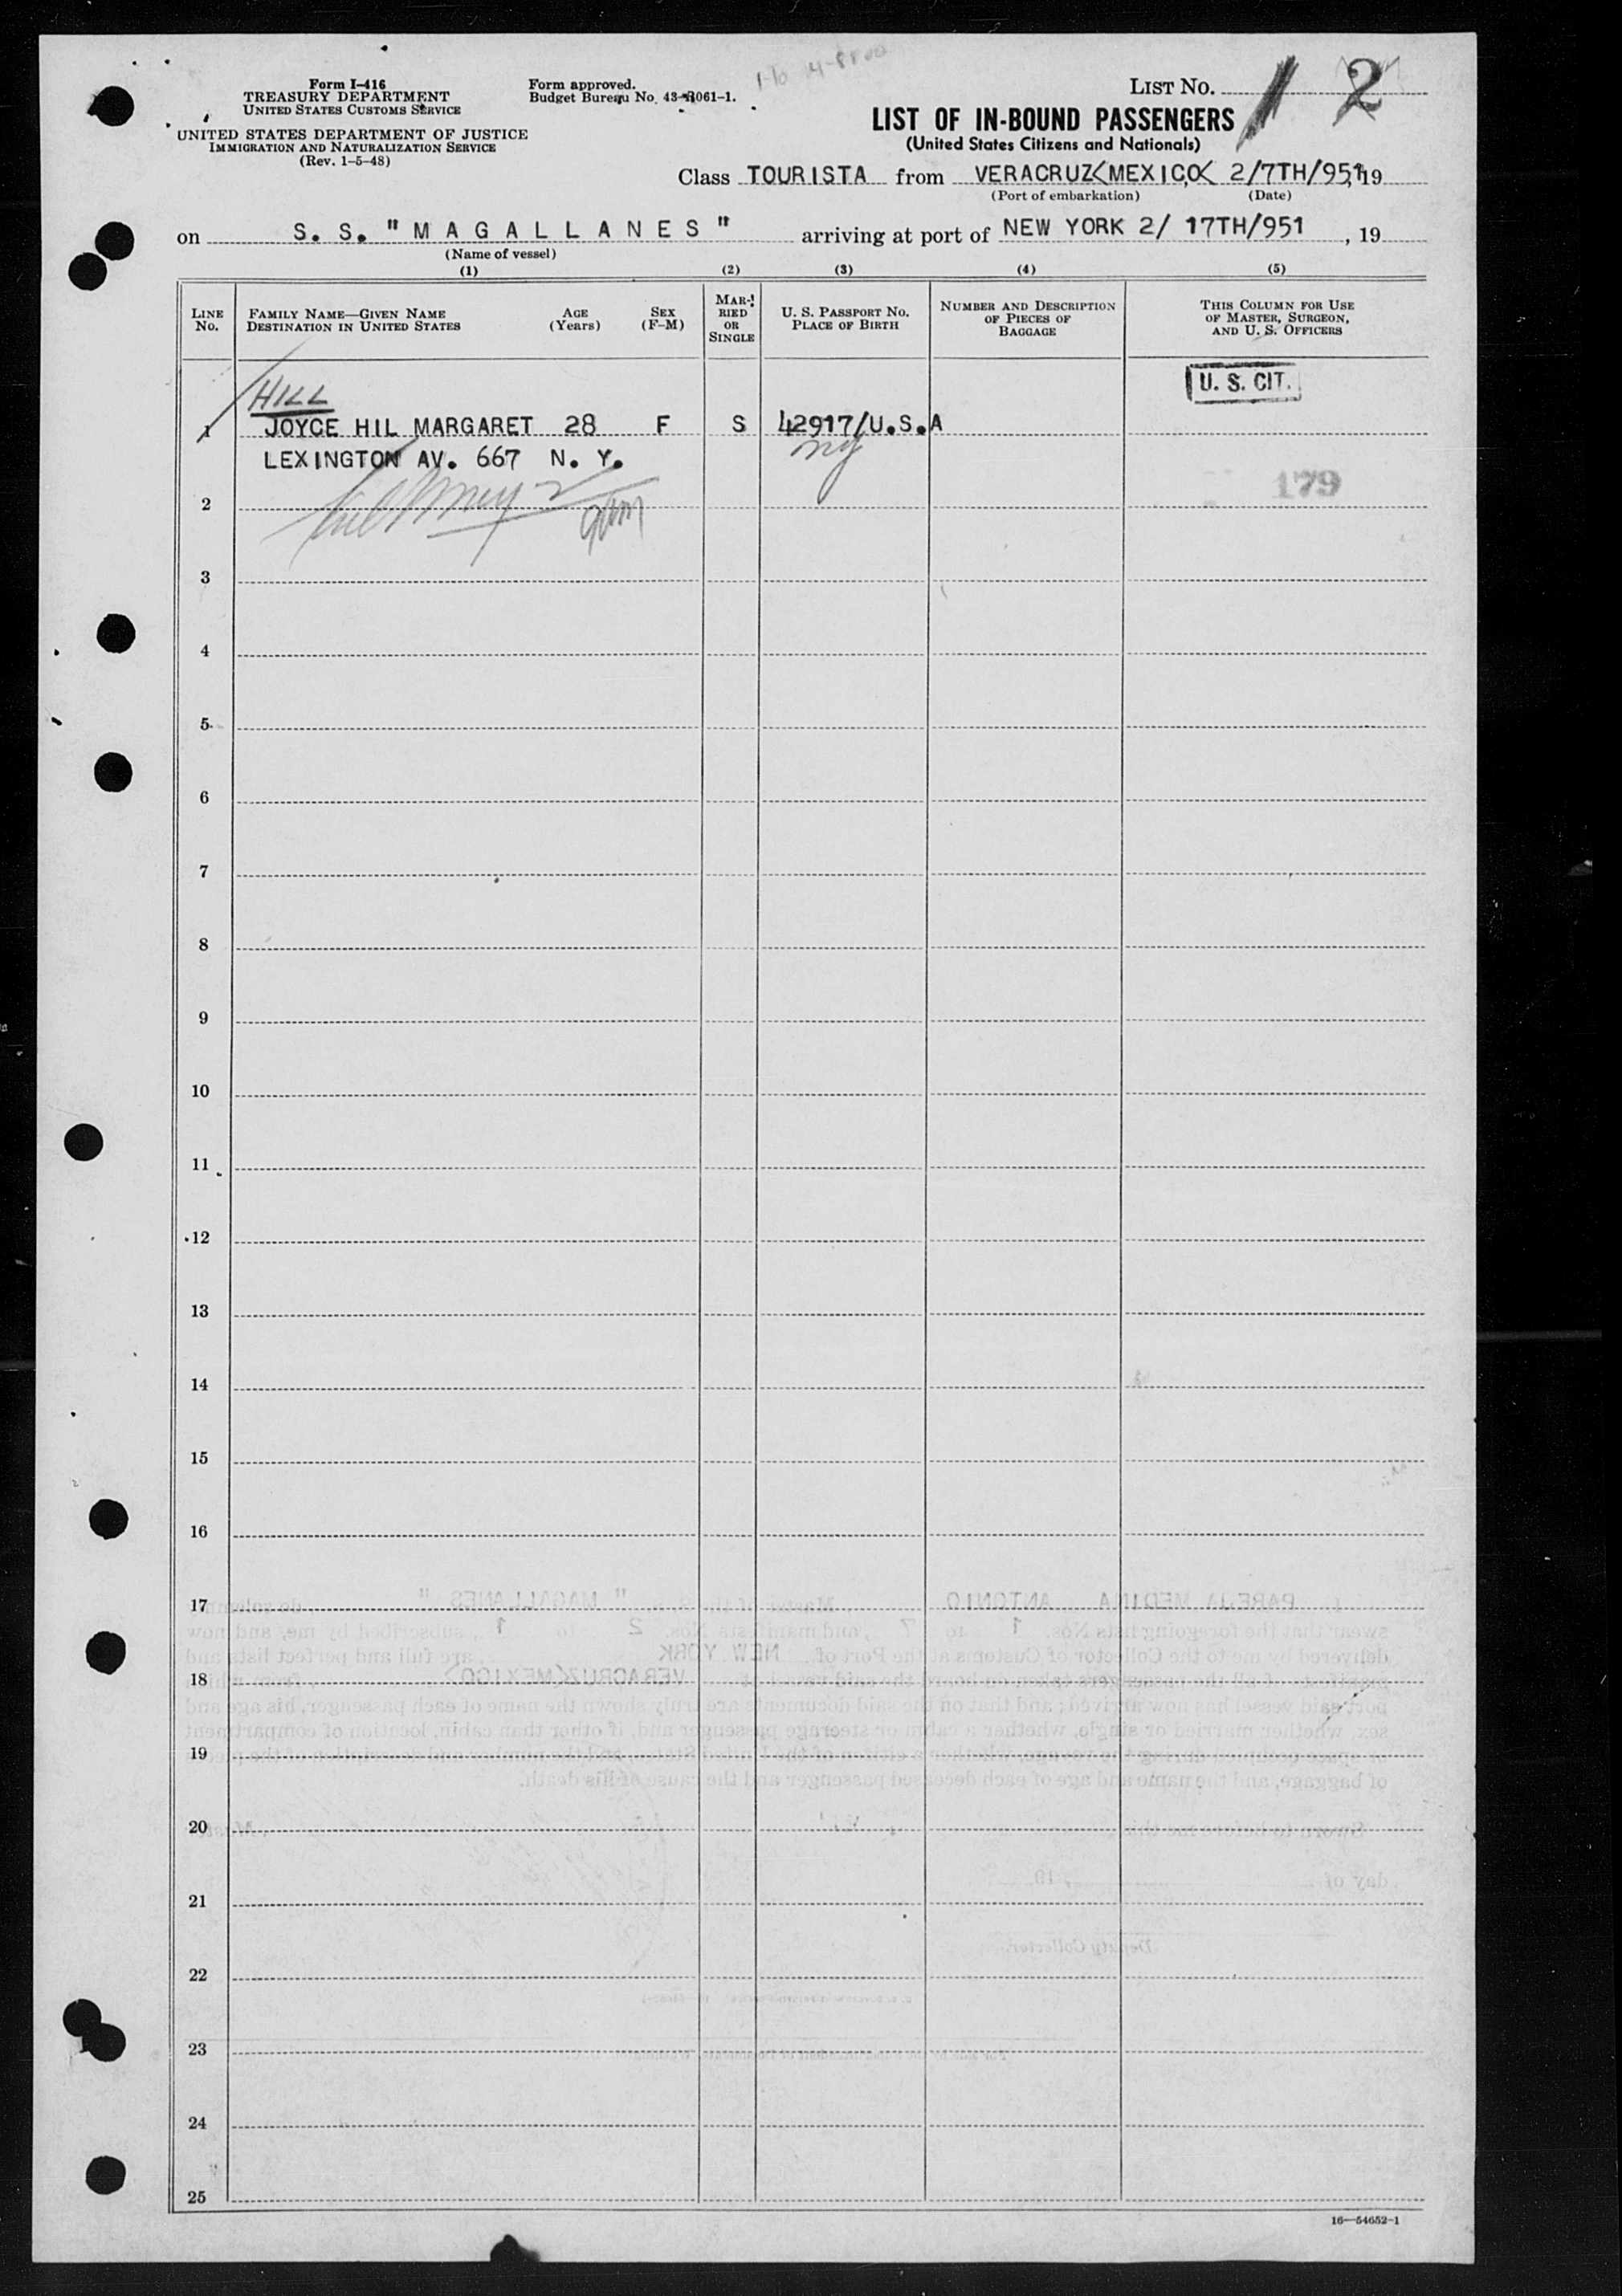 Form I-416
TREASURY DEPARTMENT
UNITED STATES CUSTOMS SERVICE
UNITED STATES DEPARTMENT OF JUSTICE
IMMIGRATION AND NATURALIZATION SERVICE
(Rev. 1-5-48)
Form approved.
Budget Bureau No. 43-R061-1.
LIST No. 2
LIST OF IN-BOUND PASSENGERS
(United States Citizens and Nationals)
Class TOURISTA from VERACRUZ<MEXICO< 2/7TH/951, 19
(Port of embarkation) (Date)
on S. S. "MAGALLANES" arriving at port of NEW YORK 2/ 17TH/951 , 19
(Name of vessel)
(1) (2) (3) (4) (5)
LINE No. FAMILY NAME—GIVEN NAME DESTINATION IN UNITED STATES AGE (Years) SEX (F-M) MARRIED OR SINGLE U. S. PASSPORT No. PLACE OF BIRTH NUMBER AND DESCRIPTION OF PIECES OF BAGGAGE THIS COLUMN FOR USE OF MASTER, SURGEON, AND U. S. OFFICERS
U. S. CIT.
HILL
1 JOYCE HIL MARGARET 28 F S 42917/U.S.A
LEXINGTON AV. 667 N. Y. ny
179
2
3
4
5
6
7
8
9
10
11
12
13
14
15
16
17
18
19
20
21
22
23
24
25
16—54652-1